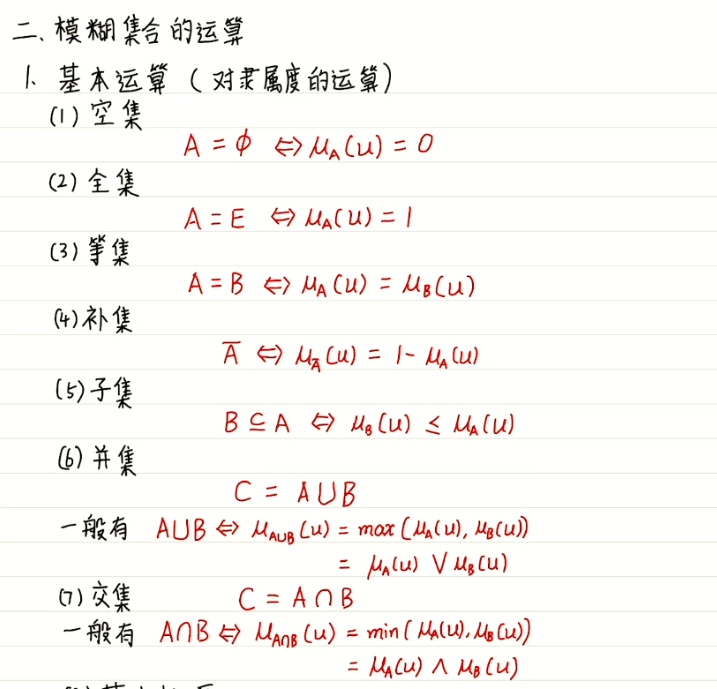 二、模糊集合的运算
1. 基本运算（对隶属度的运算）
(1) 空集
A = ϕ ⇔ μ_A(u) = 0
(2) 全集
A = E ⇔ μ_A(u) = 1
(3) 等集
A = B ⇔ μ_A(u) = μ_B(u)
(4) 补集
A̅ ⇔ μ_A̅(u) = 1 - μ_A(u)
(5) 子集
B ⊆ A ⇔ μ_B(u) ≤ μ_A(u)
(6) 并集
C = A∪B
一般有 A∪B ⇔ μ_A∪B(u) = max(μ_A(u), μ_B(u))
= μ_A(u) ∨ μ_B(u)
(7) 交集 C = A∩B
一般有 A∩B ⇔ μ_A∩B(u) = min(μ_A(u), μ_B(u))
= μ_A(u) ∧ μ_B(u)